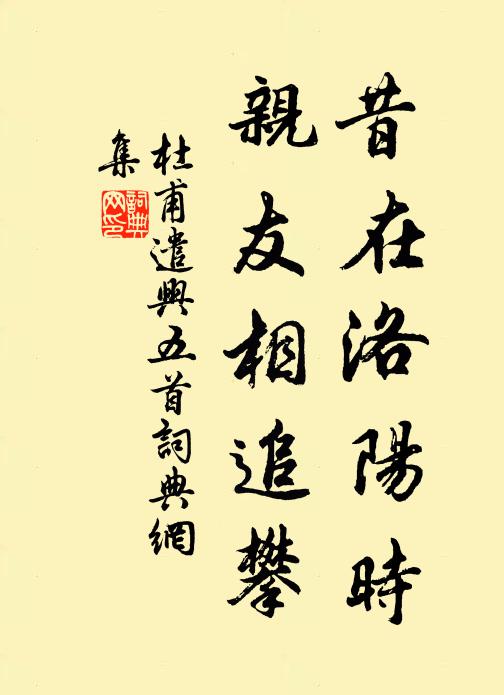 昔在洛陽時
親友相追攀
杜甫遣興五首詞典網
集
詞典網印